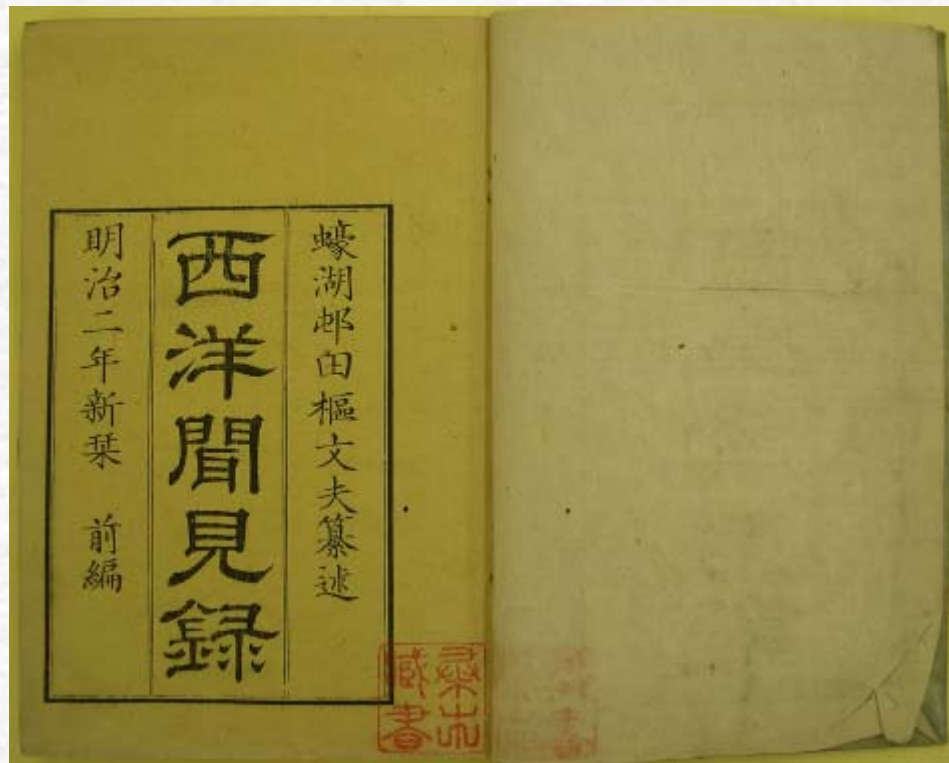 蠔湖邨田樞文夫纂述
西洋聞見録
明治二年新栞　前編
桑木
藏書